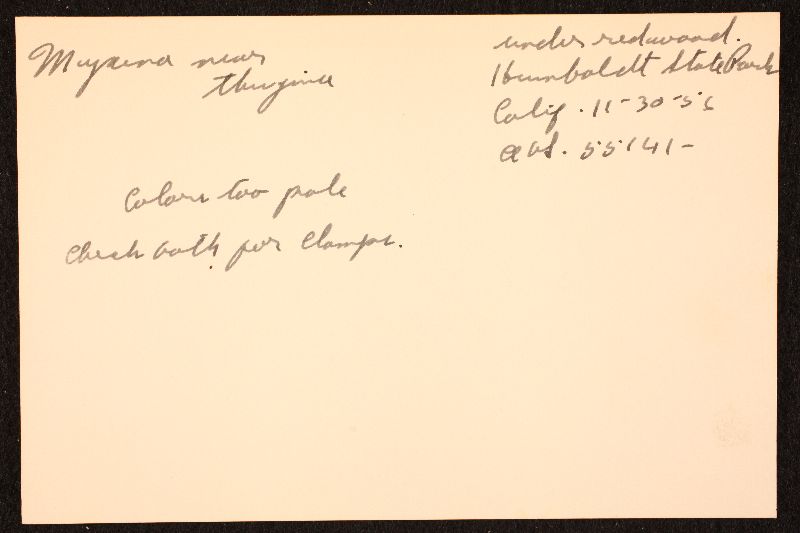 Mycena near
thujina
under redwood.
Humboldt State Park
Calif. 11-30-56
AHS. 55141-
Colors too pale
Check both for clamps.